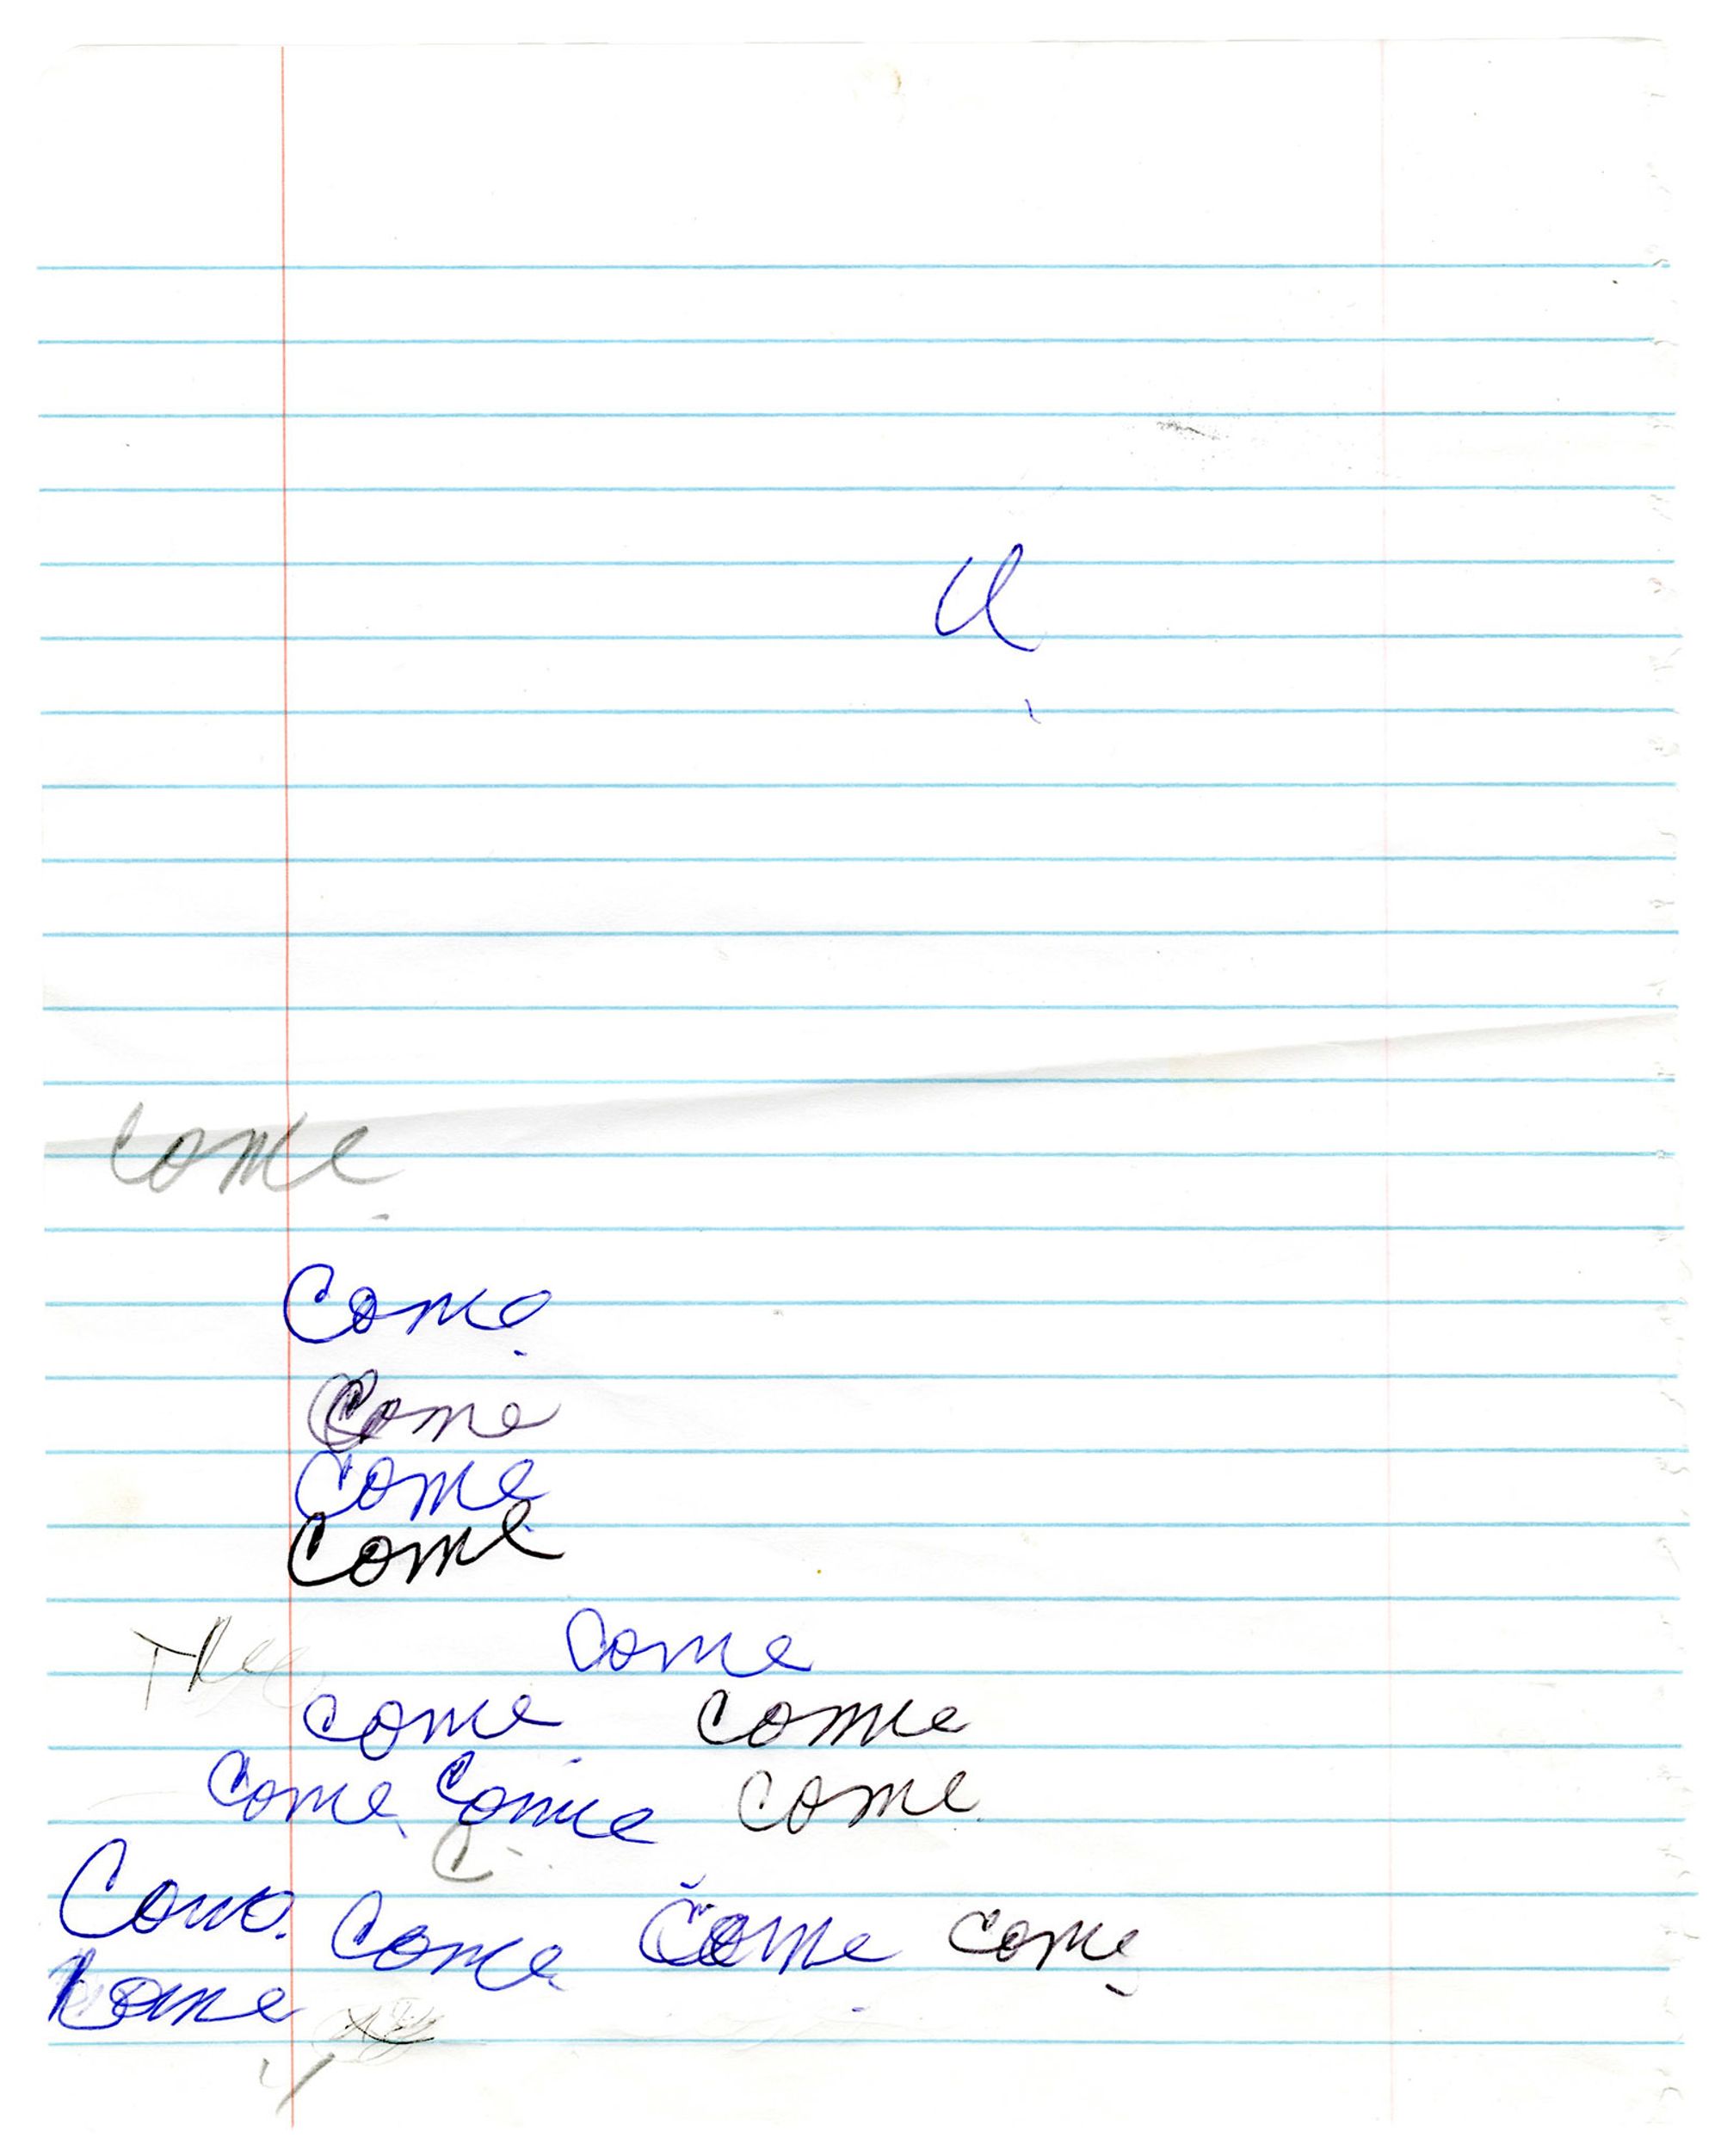 come
Come
Come
Come
Come
come
come come
come come come
Come. come Come come
Come